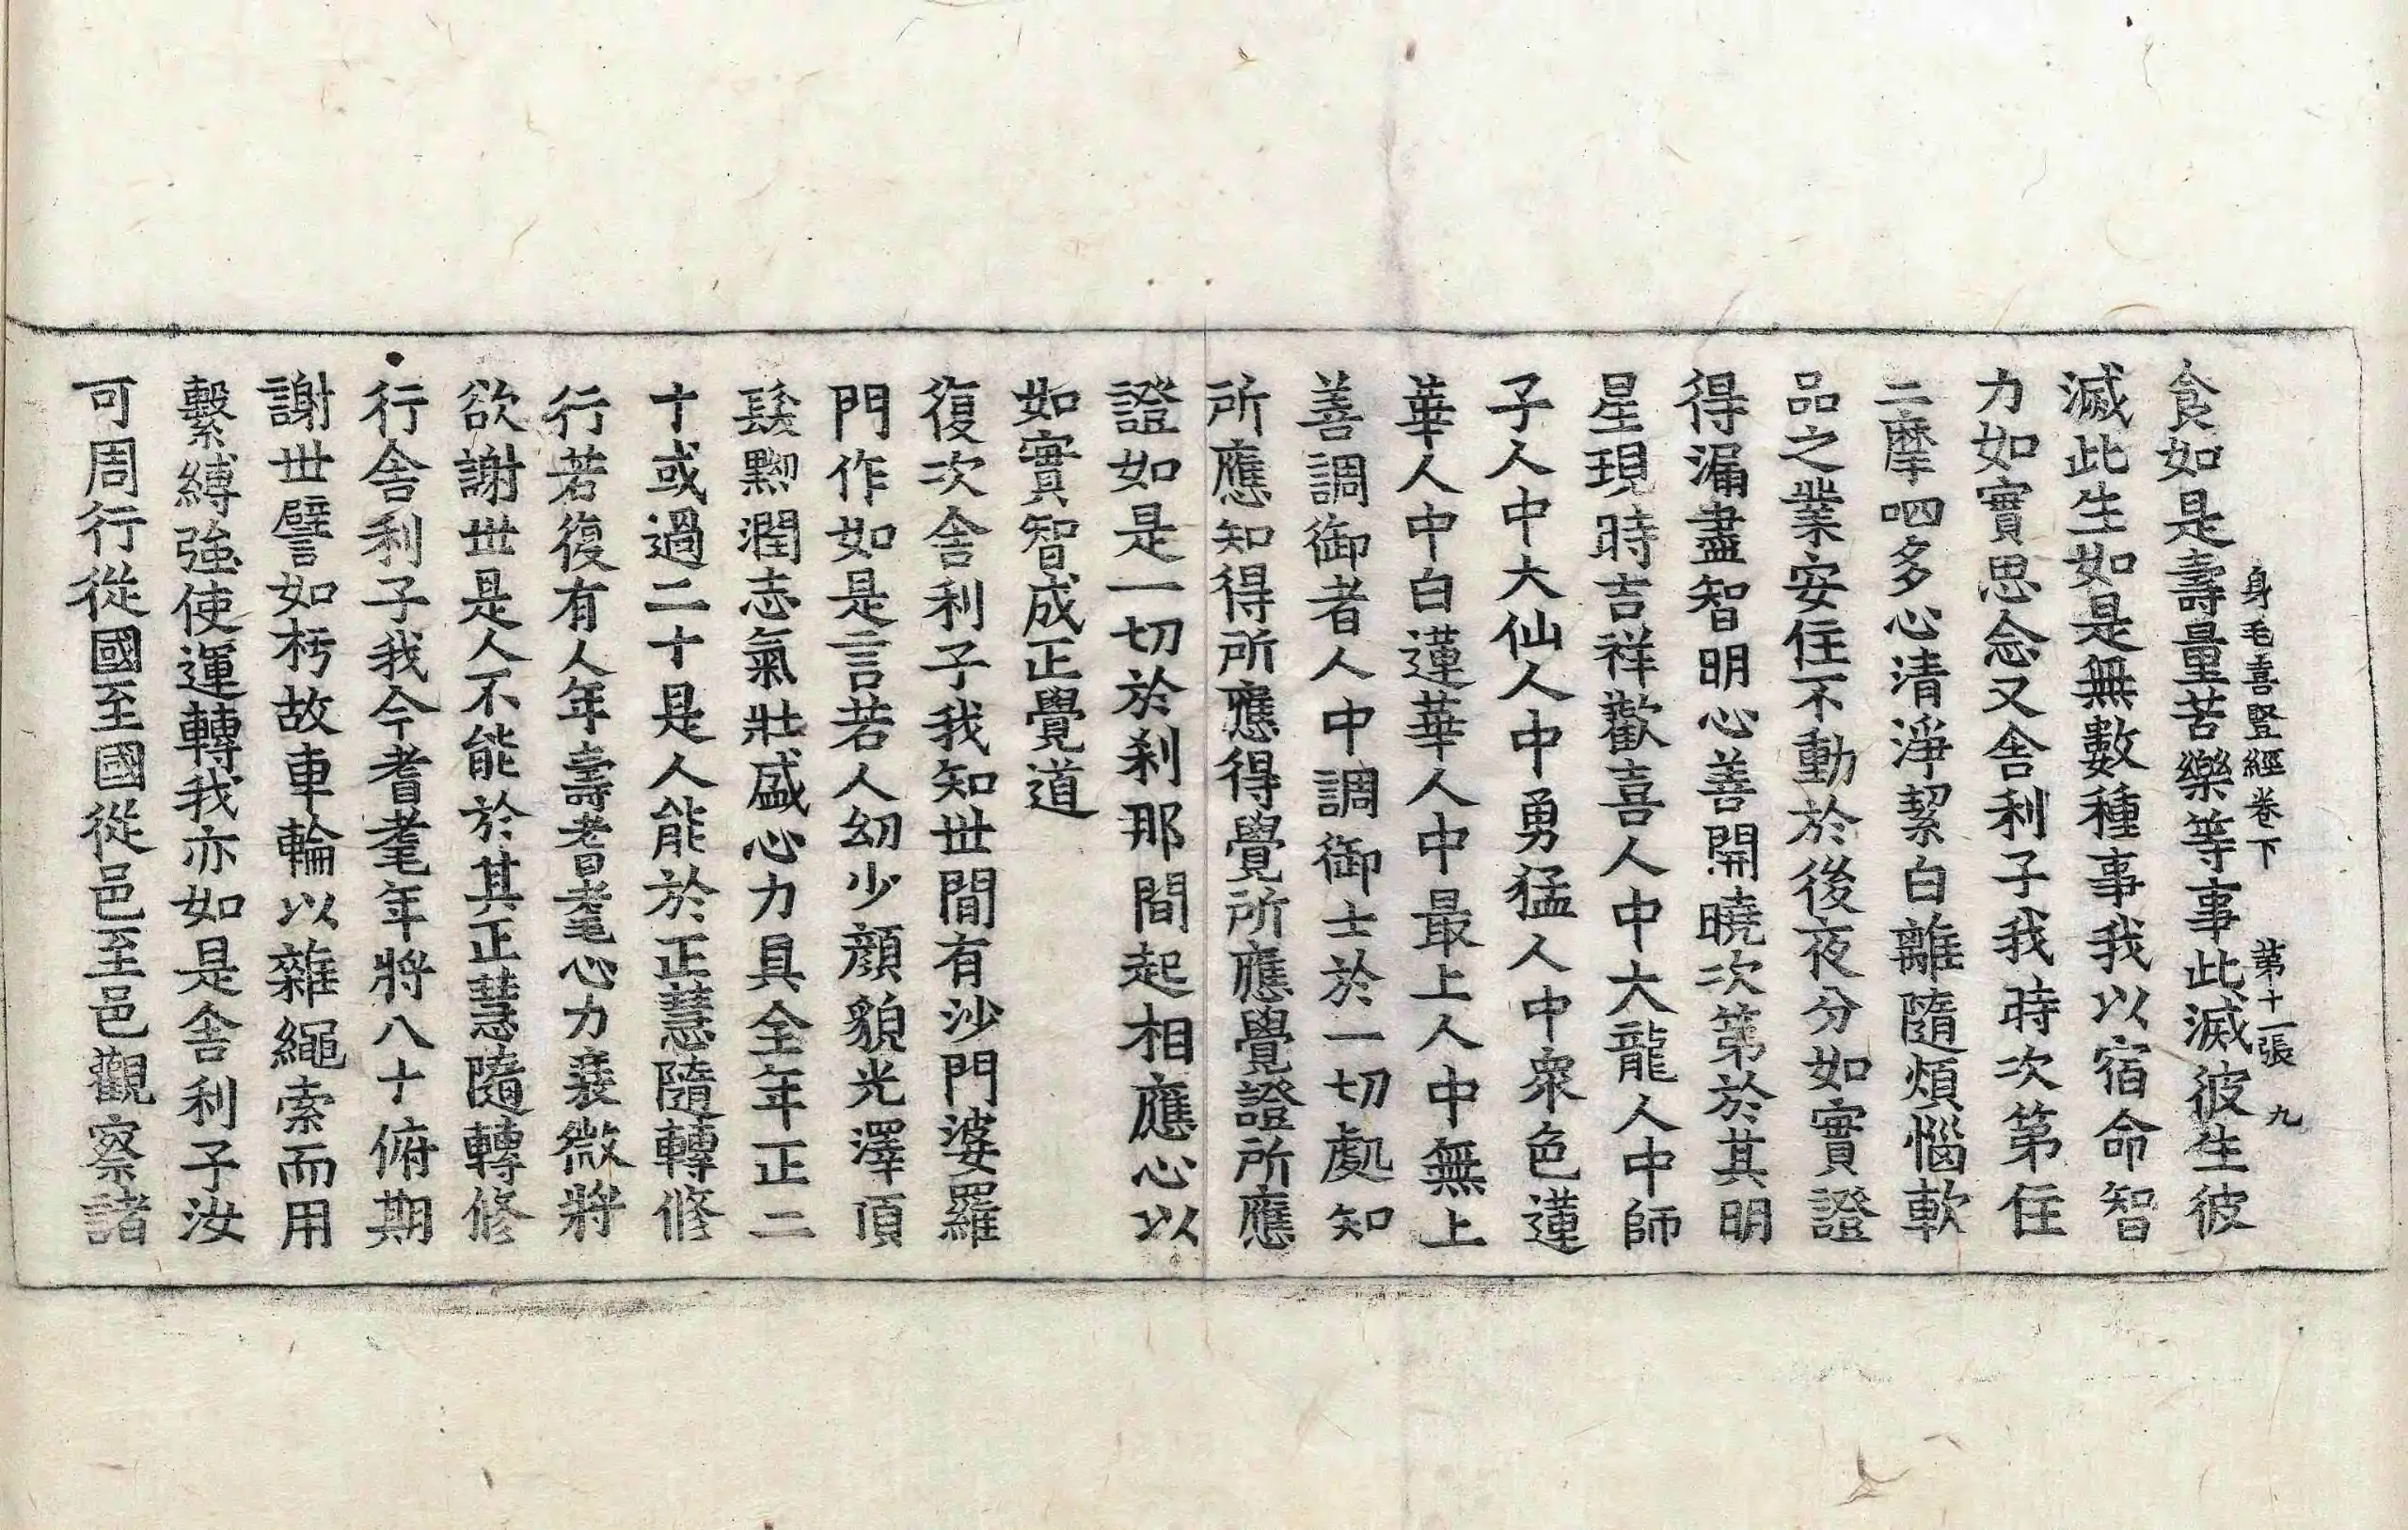 身毛喜竪經卷下 第十一張 九
食如是壽量苦樂等事此滅彼生彼
滅此生如是無數種事我以宿命智
力如實思念又舍利子我時次第住
二摩呬多心清淨絜白離隨煩惱軟
品之業安住不動於後夜分如實證
得漏盡智明心善開曉次第於其明
星現時吉祥歡喜人中大龍人中師
子人中大仙人中勇猛人中衆色蓮
華人中白蓮華人中最上人中無上
善調御者人中調御士於一切處知
所應知得所應得覺所應覺證所應
證如是一切於刹那間起相應心以
如實智成正覺道
復次舍利子我知世間有沙門婆羅
門作如是言若人幼少顔貌光澤頂
髮黳潤志氣壯盛心力具全年正二
十或過二十是人能於正慧隨轉修
行若復有人年壽耆耄心力衰微將
欲謝世是人不能於其正慧隨轉修
行舍利子我今耆耄年將八十俯期
謝世譬如朽故車輪以雜繩索而用
繫縛強使運轉我亦如是舍利子汝
可周行從國至國從邑至邑觀察諸